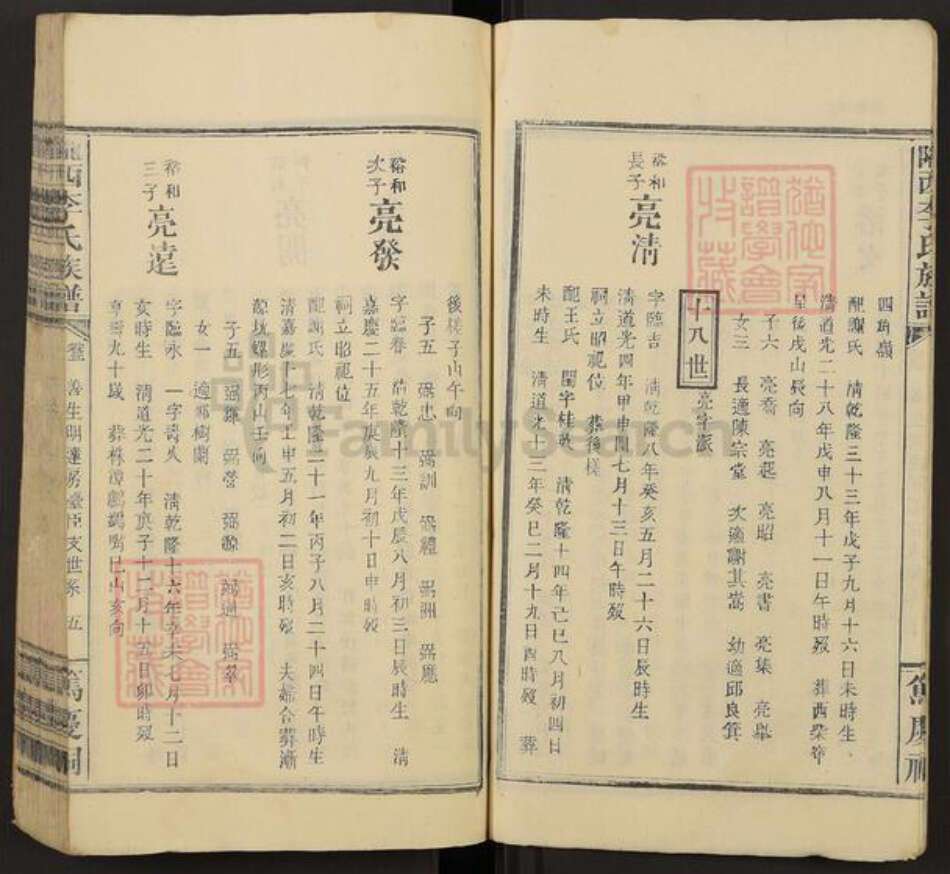 隴西李氏族譜
篤慶祠
四角嶺
配謝氏 清乾隆三十三年戊子九月十六日未時生
清道光二十八年戊申八月十一日午時歿 葬西柴笭
呈後戌山辰向
子六 亮喬 亮選 亮昭 亮書 亮集 亮舉
女三 長適陳宗堂 次適謝其嵩 幼適邱良箕
十八世 亮字派
裕和長子 亮清
字臨吉 清乾隆八年癸亥五月二十六日辰時生
清道光四年甲申閏七月十三日午時歿
祠立昭祝位 葬後樣
配王氏 閨字桂 清乾隆十四年己巳八月初四日
未時生 清道光十三年癸巳二月十九日酉時歿 葬
後樣子山午向
子五 弼忠 弼訓 弼禮 弼洲 弼應
裕和次子 亮發
字臨春 清乾隆十三年戊辰八月初三日辰時生 清
嘉慶二十五年庚辰九月初十日申時歿
祠立昭祝位
配謝氏 清乾隆二十一年丙子八月二十四日午時生
清嘉慶十七年壬申五月初二日亥時歿 夫婦合葬漸
源坑螺形丙山壬向
子五 弼賺 弼營 弼源 弼通 弼萃
女一 適鄒樹蘭
裕和三子 亮遠
字臨永 一字壽久 清乾隆十六年辛未七月十二日
亥時生 清道光二十年庚子十二月十五日卯時歿
享壽九十歲 葬株潭鸕鷀嘴巳山亥向
隴西李氏族譜
善生明達房臺臣支世系 五
篤慶祠
猶他家譜學會收藏
猶他家譜學會收藏
FamilySearch